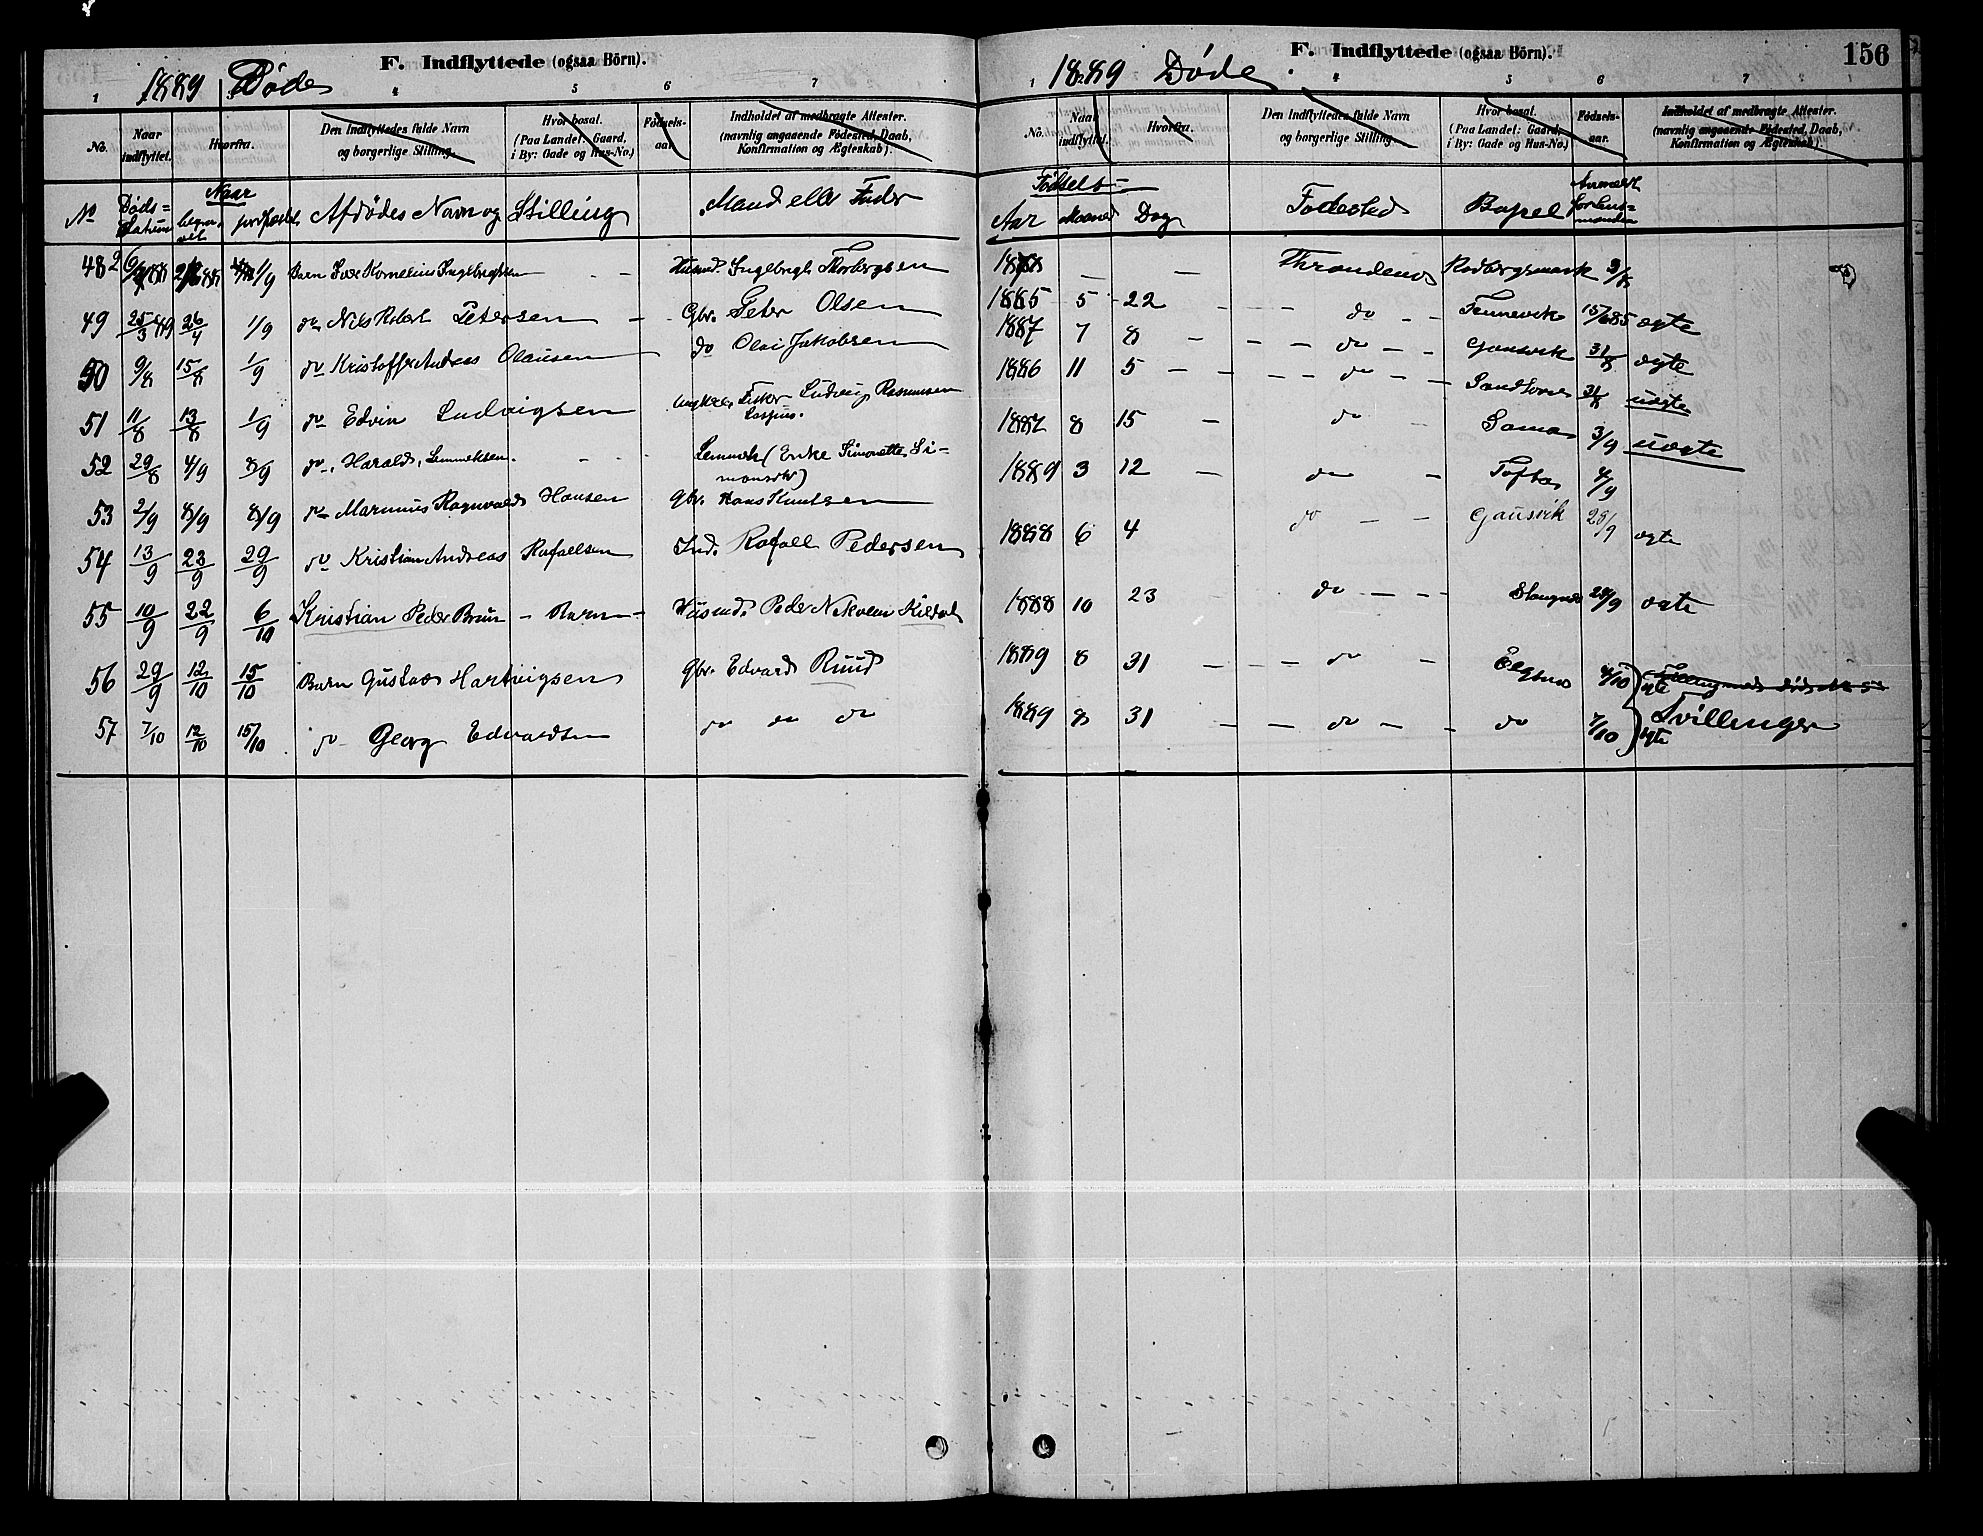 F. Indflyttede (ogsaa Börn).
1889 Døde
1 4 5 6 7
No. Naar indflyttet. Hvorfra. Den Indflyttedes fulde Navn og borgerlige Stilling. Hvor bosat. (Paa Landet: Gaard, i By: Gade og Hus-No.) Födsels-aar. Indholdet af medbragte Attester. (navnlig angaaende Födested, Daab, Konfirmation og Ægteskab).
No Døds=datum Naar begra-vet Afdødes Navn og Stilling Mand eller Fader
48 1/9 Barn Kornelius Ingebrigtsen - - Husmd. Ingebrigt Thorbergsen
49 25/3 89 26/4 1/9 do Nils Robert Petersen - Gbr. Peter Olsen
50 9/8 15/8 1/9 do Kristoffer Andreas Olausen do Olai Jakobsen
51 11/8 13/8 1/9 do Edvin Ludvigsen Ungkarl Fisker Ludvig Rasmussen
52 29/8 4/9 8/9 do Harald Lemmeksen. - - Lemmek (Enke Simonette Si-
monsdtr)
53 2/9 8/9 8/9 do Marinius Ragnvald Hansen Gbr. Hans Knutsen
54 13/9 23/9 29/9 do Kristian Andreas Rafaelsen Ind. Rafael Pedersen
55 10/9 22/9 6/10 Kristian Peder Brun - Barn - Husmd. Peder Nikolai Kildal
56 29/9 12/10 15/10 Barn Gustav Hartvigsen Gbr. Edvard Ruud
57 7/10 12/10 15/10 do Georg Edvardsen do do do
F. Indflyttede (ogsaa Börn).
156
1889 Døde.
1 4 5 6 7
No. Naar indflyttet. Hvorfra. Den Indflyttedes fulde Navn og borgerlige Stilling. Hvor bosat. (Paa Landet: Gaard, i By: Gade og Hus-No.) Födsels-aar. Indholdet af medbragte Attester. (navnlig angaaende Födested, Daab, Konfirmation og Ægteskab).
Fødsels=
Aar Maaned Dag Fødested Bopæl Anmeldt for Lens=manden
1888 - - Throndenes Rodbergsmark
1885 5 22 - - do - - Tennevik 15/6 85 ægte
1887 7 8 - - - do - - Gausvik 31/8 ægte
1886 11 5 - - - do - - Sandtorv 31/8 uægte
1887 8 15 - do - Sama 3/9 uægte
1889 3 12 - do - Toftas 4/9
1888 6 4 do - - Gausvik 28/9 ægte
1888 10 23 do - - - Slangnes 28/9 ægte
1889 8 31 - - - do - Elgsnes 4/10 ægte
1889 8 31 - - do - - do 7/10 ægte Tvillinger